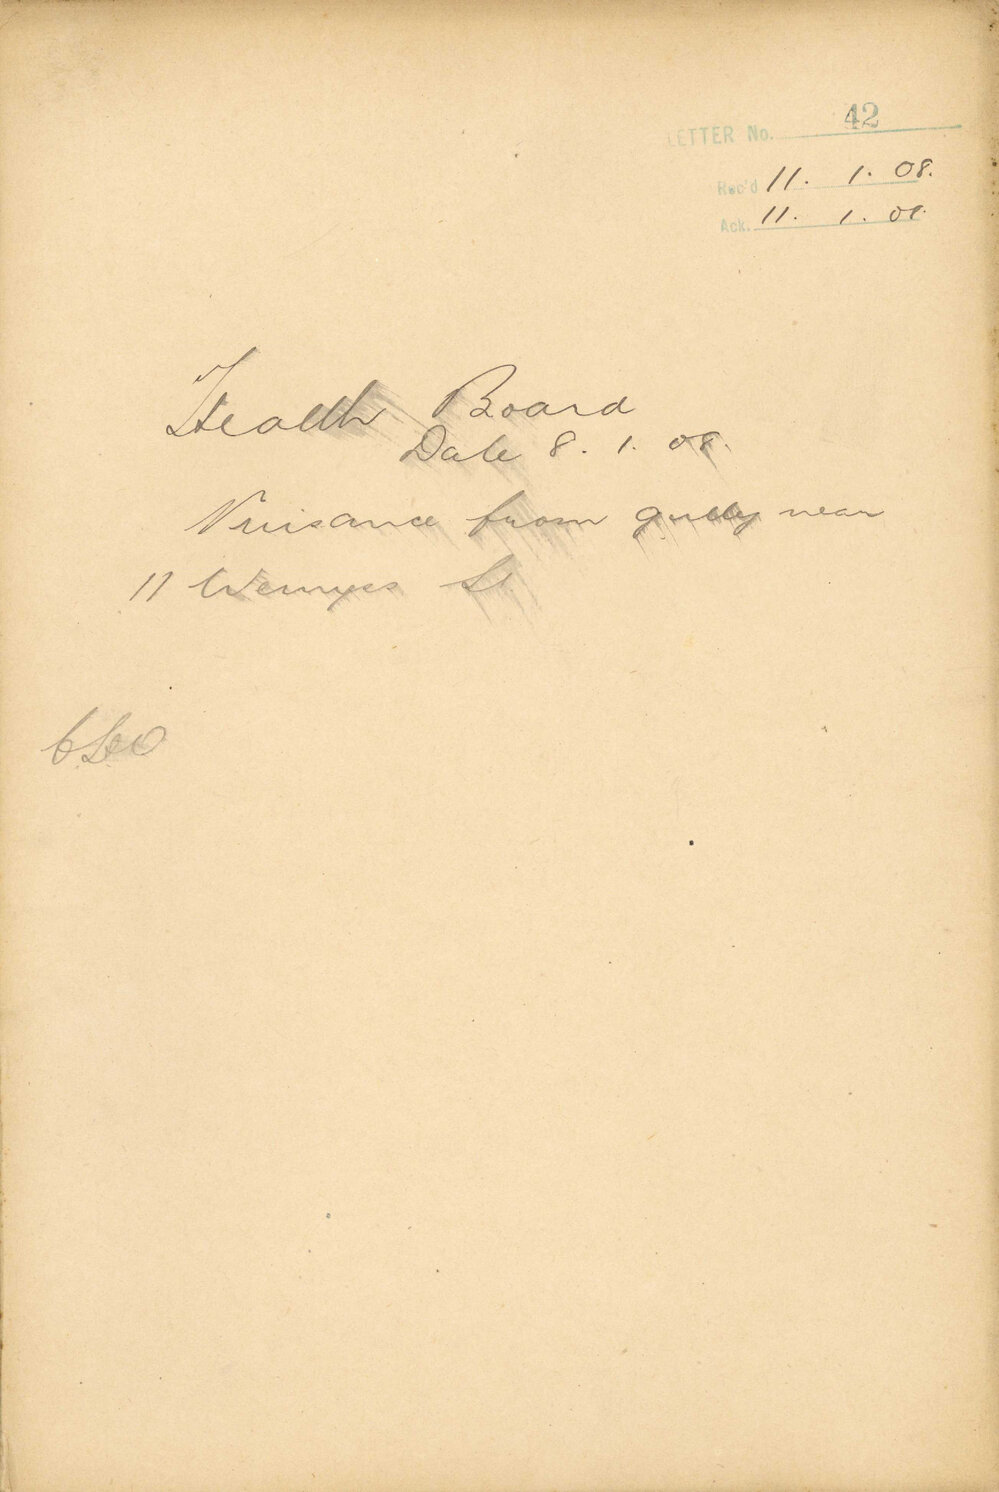 LETTER No. 42
Rec'd 11. 1. 08.
Ack. 11. 1. 08.
Health Board
Date 8. 1. 08.
Nuisance from gully near
11 Wemyss St